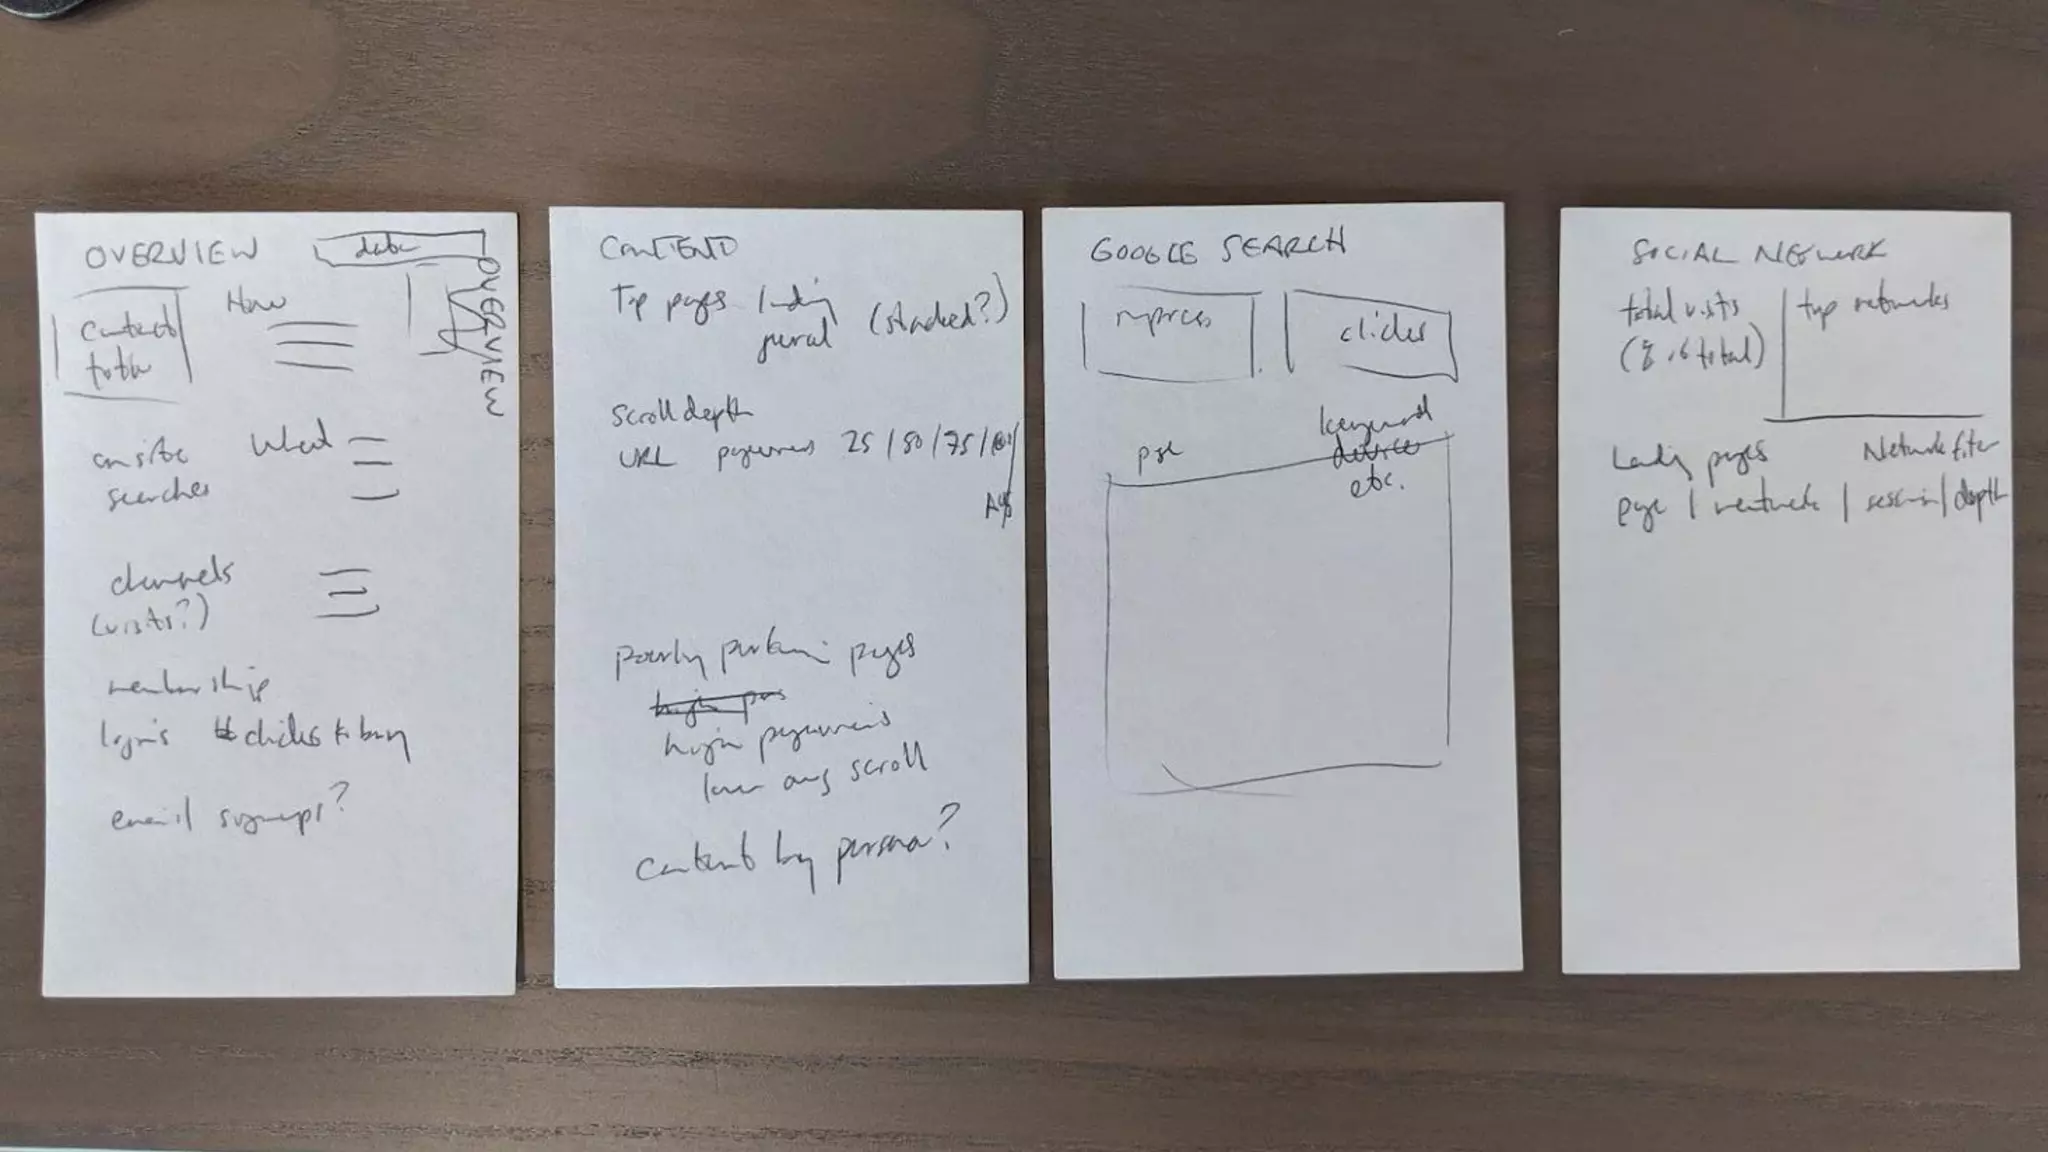 OVERVIEW date
OVERVIEW
contact How
total
onsite What
searches
channels
(visits?)
membership
logins clicks to buy
email signups?
CONTENT
Top pages landing (stacked?)
general
Scroll depth
URL pageviews 25/50/75/100/
Avg
poorly performing pages
high
high pageviews
low avg scroll
content by persona?
GOOGLE SEARCH
impress clicks
keyword
page device
etc.
SOCIAL NETWORK
total visits top networks
(% of total)
Landing pages Network filter
page / network / session / depth